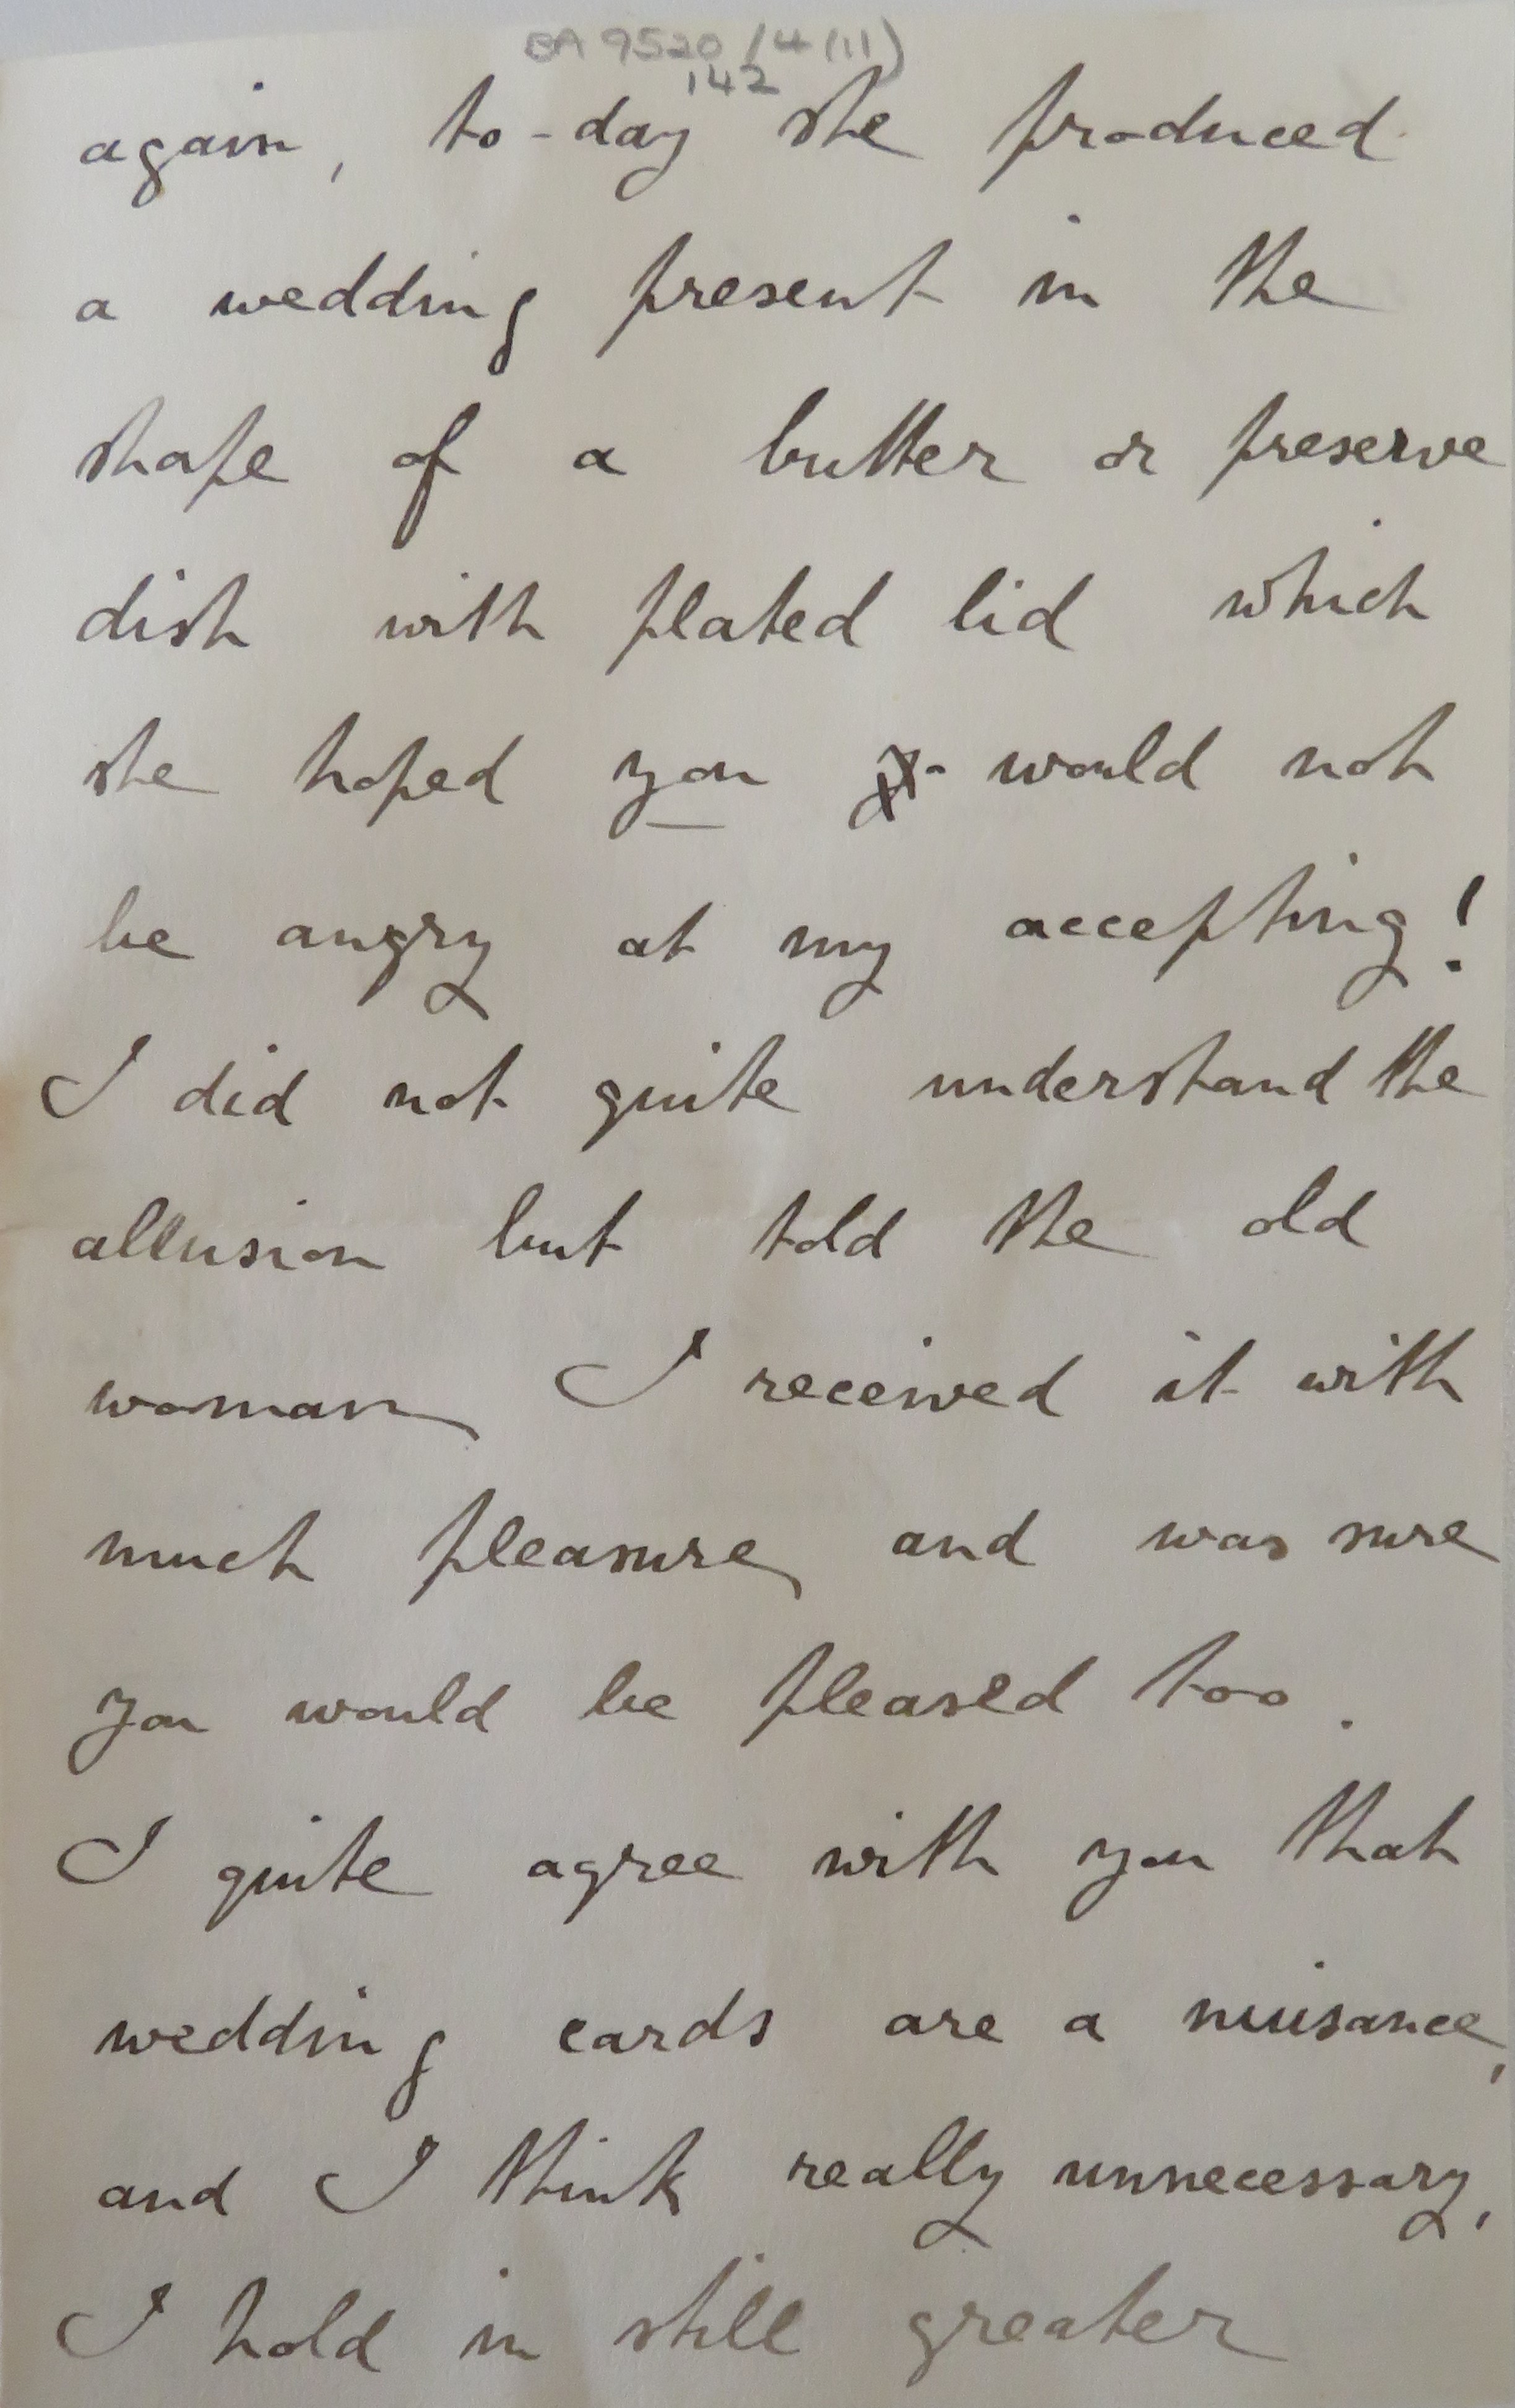 BA 9520/4(11)
142
again, to-day she produced
a wedding present in the
shape of a butter or preserve
dish with plated lid which
she hoped you would not
be angry at my accepting!
I did not quite understand the
allusion but told the old
woman I received it with
much pleasure and was sure
you would be pleased too.
I quite agree with you that
wedding cards are a nuisance,
and I think really unnecessary,
I hold in still greater